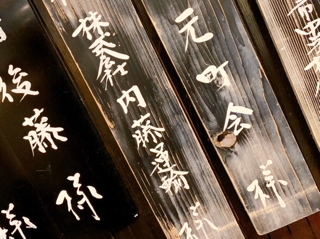 元町会様
株式会社内藤運輸様
後藤様
様